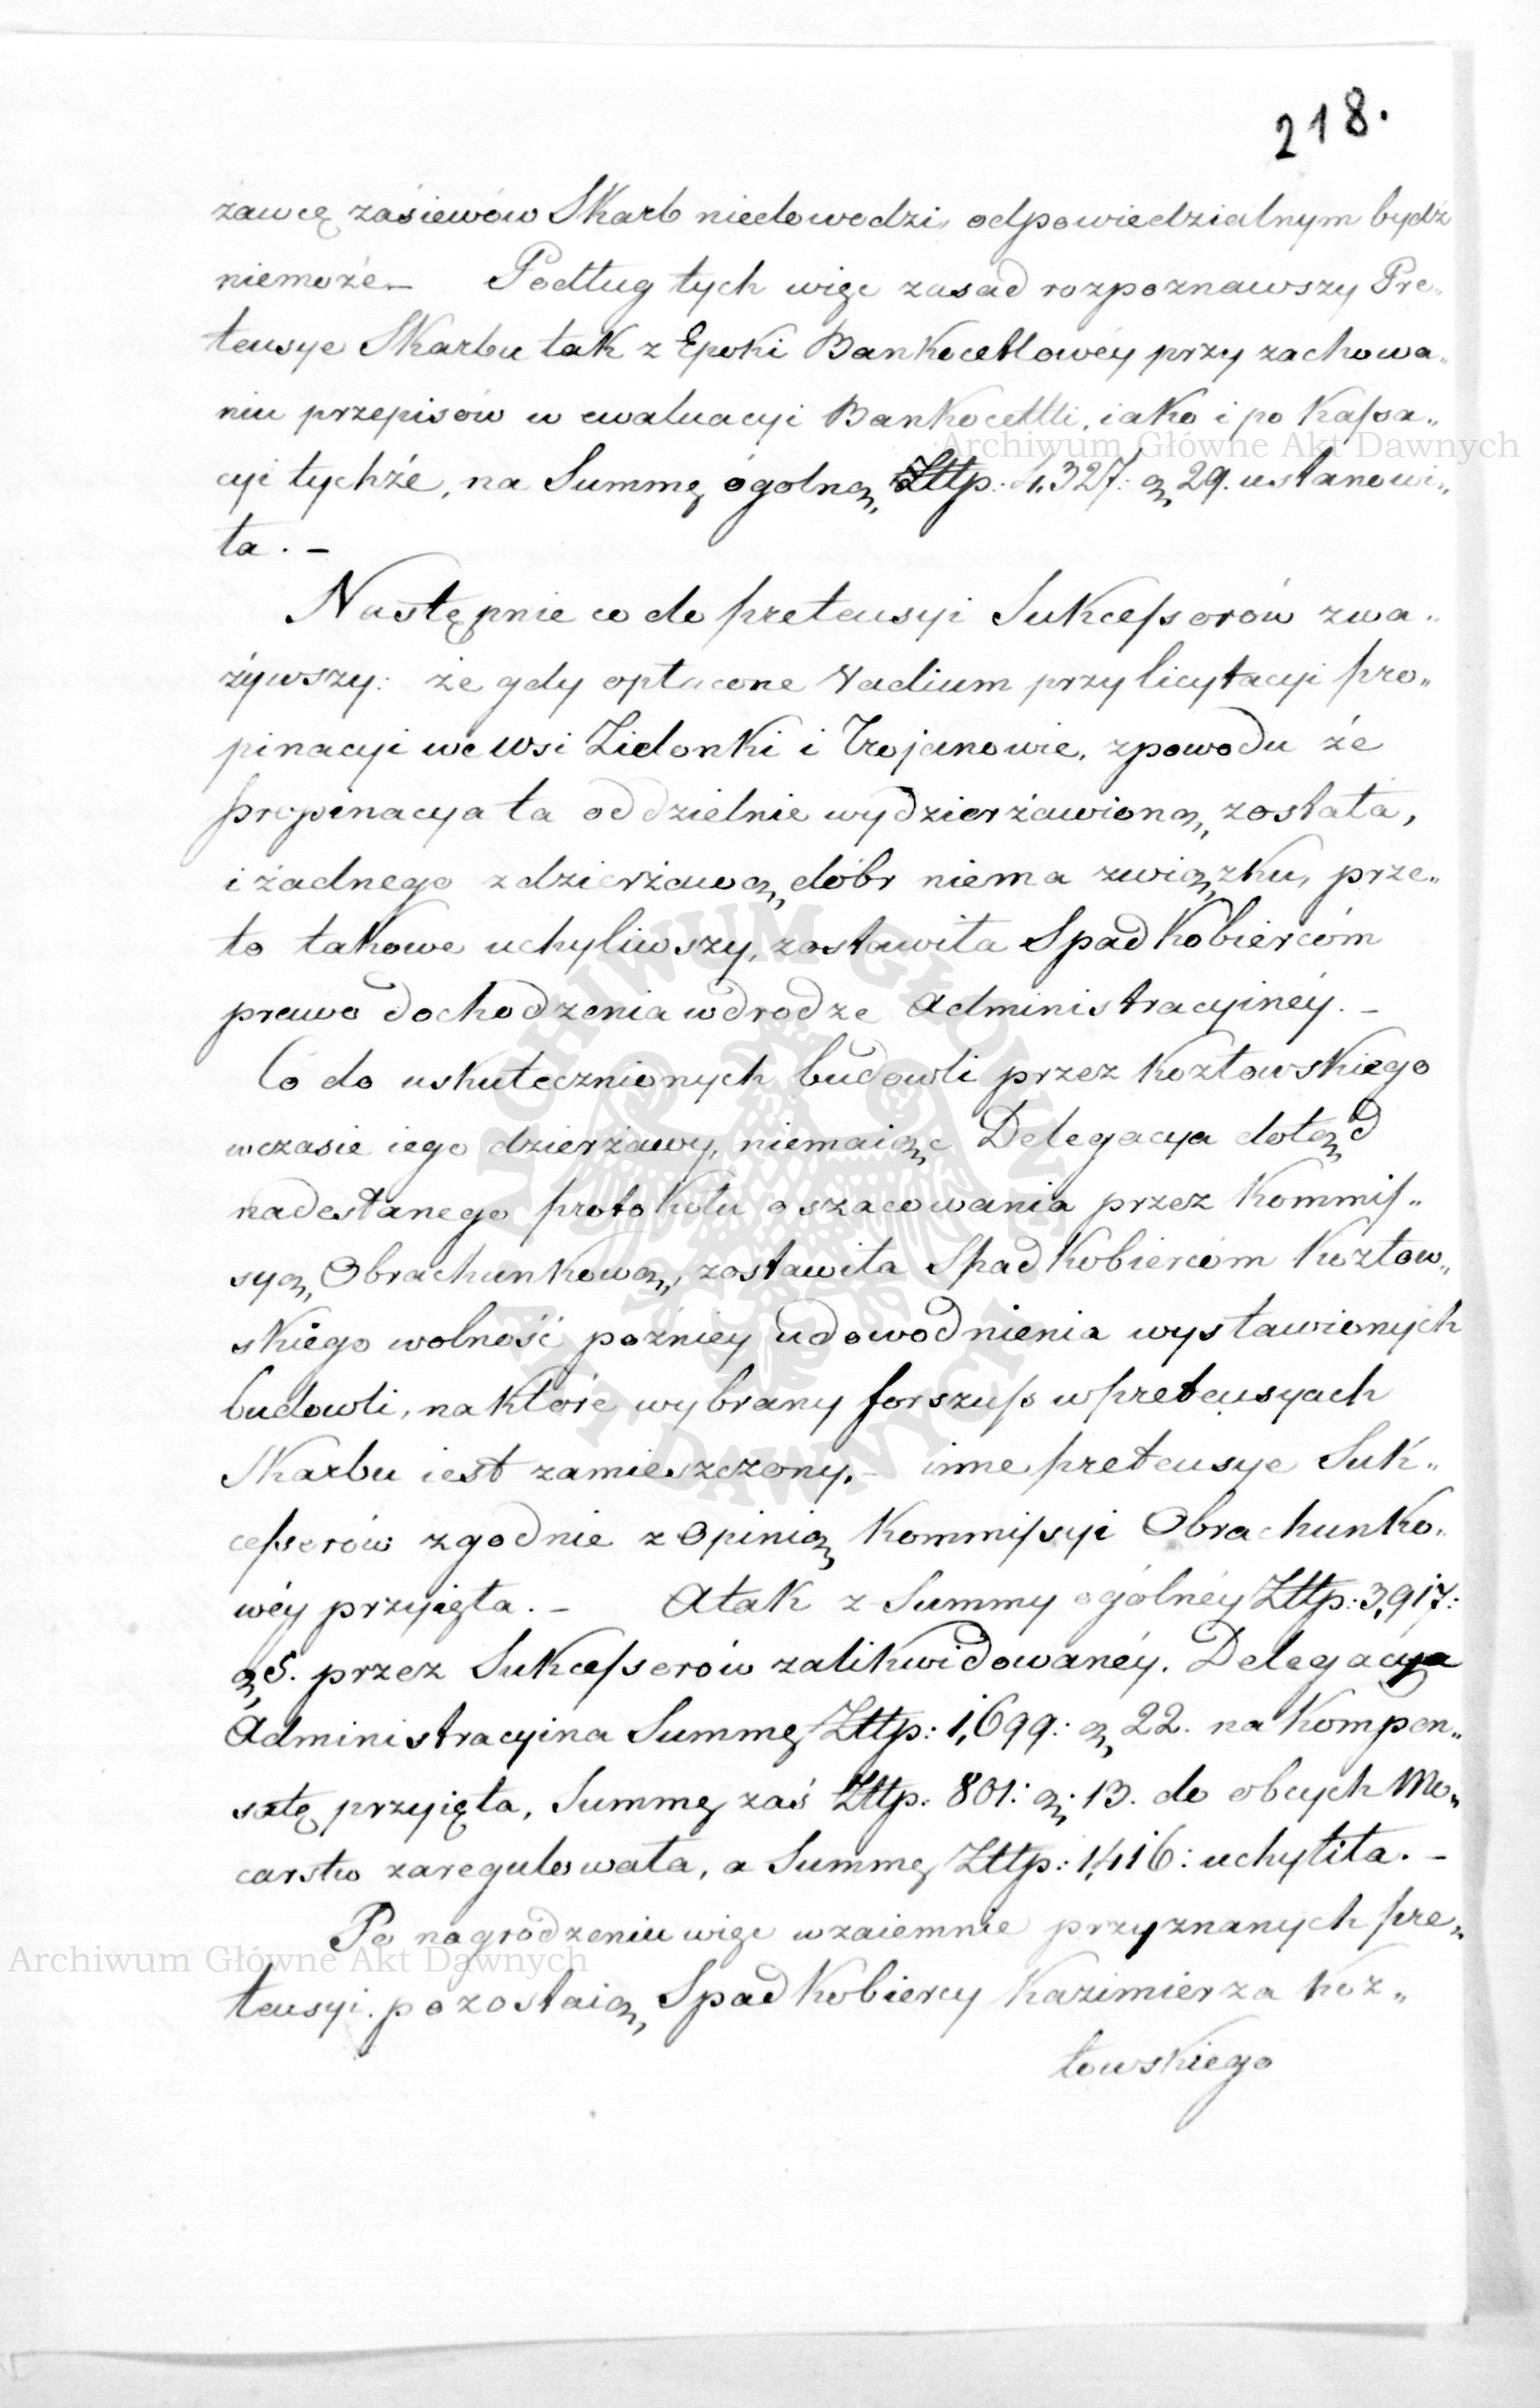 218.
żawcę zasiewów Skarb niedowodzi, odpowiedzialnym bydź
niemoże_ Podług tych więc zasad rozpoznawszy Pre„
tensye Skarbu tak z Epoki Bankocetlowéy przy zachowa„
niu przepisów w ewaluacyi Bankocetli, iako i po Kassa„
Archiwum Główne Akt Dawnych
cyi tychże, na Summę ogólną Złtp: 4,327: g 29. ustanowi„
ła. –
Następnie co do pretensyi Sukcessorów zwa„
żywszy: że gdy opłacone Vadium przy licytacyi pro„
pinacyi we Wsi Zielonki i Trojanowie, zpowodu że
propinacya ta oddzielnie wydzierżawioną została,
i żadnego z dzierżawą dóbr niema związku, prze„
to takowe uchyliwszy, zostawiła Spadkobiercóm
prawo dochodzenia wdrodze Administracyinéy. –
Co do uskutecznionych budowli przez Kozłowskiego
wczasie iego dzierżawy, niemaiąc Delegacya dotąd
nadesłanego protokółu oszacowania przez Kommis„
syą Obrachunkową, zostawiła Spadkobiercóm Kozłow„
skiego wolność poźniey udowodnienia wystawionych
budowli, na które wybrany forszuss w pretensyach
Skarbu iest zamieszczony. – inne pretensye Suk„
cessorów zgodnie z Opinią Kommissyi Obrachunko„
wéy przyięła. – Atak z Summy ogólnéy Złtp: 3,917:
g 5. przez Sukcessorów zalikwidowanéy. Delegacya
Administracyina Summę Złtp: 1,699: g 22. na Kompen„
satę przyięła, Summę zaś Złtp: 801: g: 13. do obcych Mo„
carstw zaregulowała, a Summę Złtp: 1,416: uchyliła. –
Po nagrodzeniu więc wzaiemnie przyznanych pre„
Archiwum Główne Akt Dawnych
tensyi. pozostaią Spadkobiercy Kazimierza Koz„
łowskiego
ARCHIWUM GŁÓWNE AKT DAWNYCH